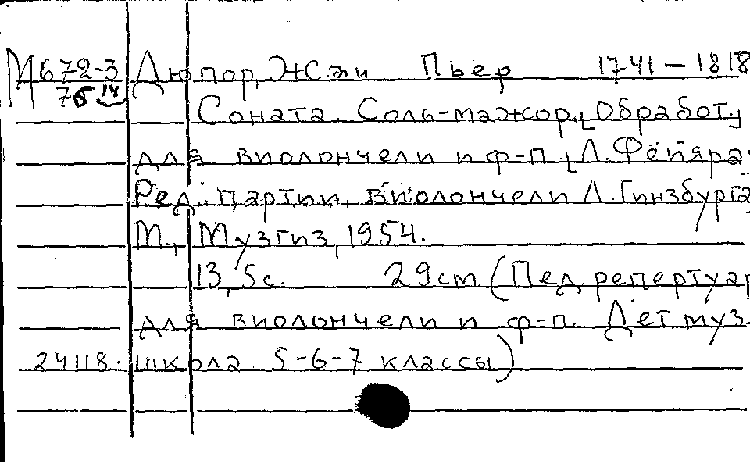 М672-3 Дюпор, Жан Пьер 1741 – 1818
75 14
Соната Соль-мажор, [Обработ
для виолончели и ф-п. Л. Фейяра
Ред. партии виолончели Л. Гинзбурга
М., Музгиз, 1954.
13, 5с. 29cm (Пед. репертуар
для виолончели и ф-п. Дет муз.
24118. школа 5-6-7 классы)